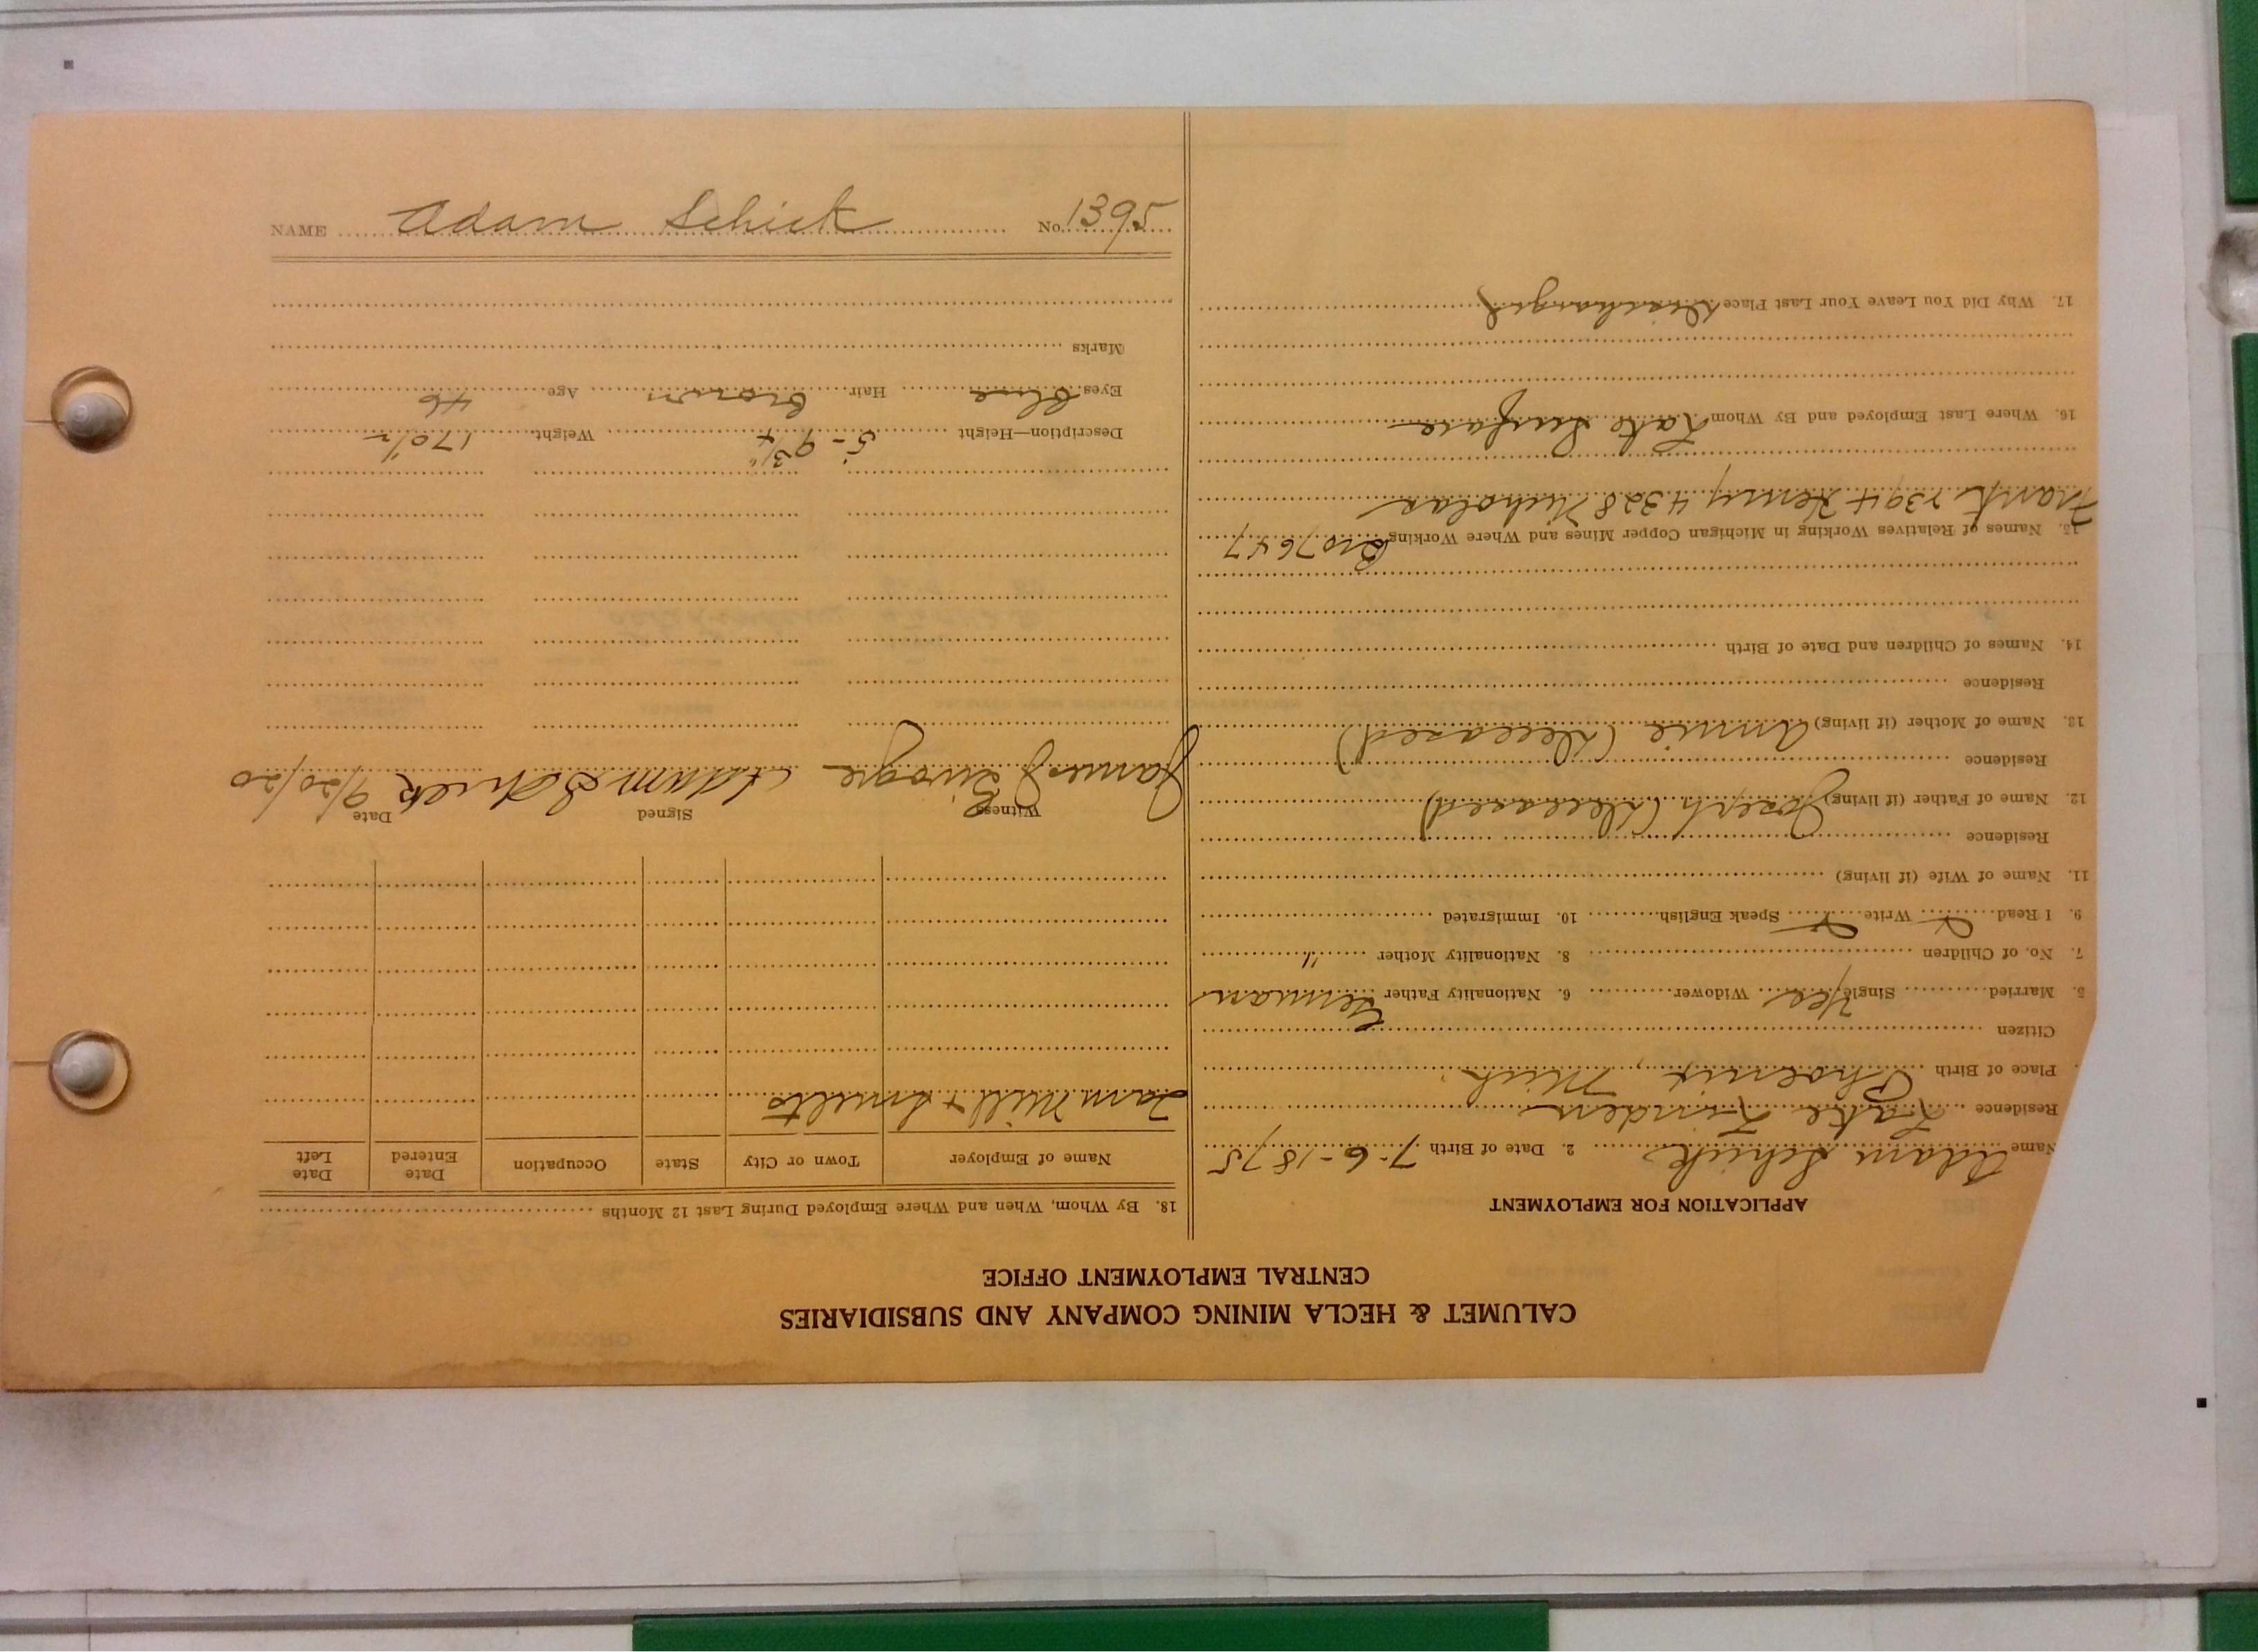 NAME Adam Schick No. 1395
CALUMET & HECLA MINING COMPANY AND SUBSIDIARIES
CENTRAL EMPLOYMENT OFFICE
APPLICATION FOR EMPLOYMENT
Name Adam Schick 2. Date of Birth 7-6-1875
Residence Lake Linden
Place of Birth Phoenix, Mich.
Citizen
5. Married Single Yes Widower 6. Nationality Father German
7. No. of Children 8. Nationality Mother "
9. I Read Write Speak English 10. Immigrated
11. Name of Wife (if living)
Residence
12. Name of Father (if living) Joseph (Deceased)
Residence
13. Name of Mother (if living) Annie (Deceased)
Residence
14. Names of Children and Date of Birth
15. Names of Relatives Working in Michigan Copper Mines and Where Working Bro 7647
Frank 2394 Henry 4328 Nicholas
16. Where Last Employed and By Whom Lake Surface
17. Why Did You Leave Your Last Place Discharged
18. By Whom, When and Where Employed During Last 12 Months
Name of Employer Town or City State Occupation Date Entered Date Left
Tam Mill & Smelto
Witness Signed Date
James Adam Schick 9/20/20
Description—Height 5-9 3/4" Weight 170 1/2
Eyes Blue Hair Brown Age 46
Marks